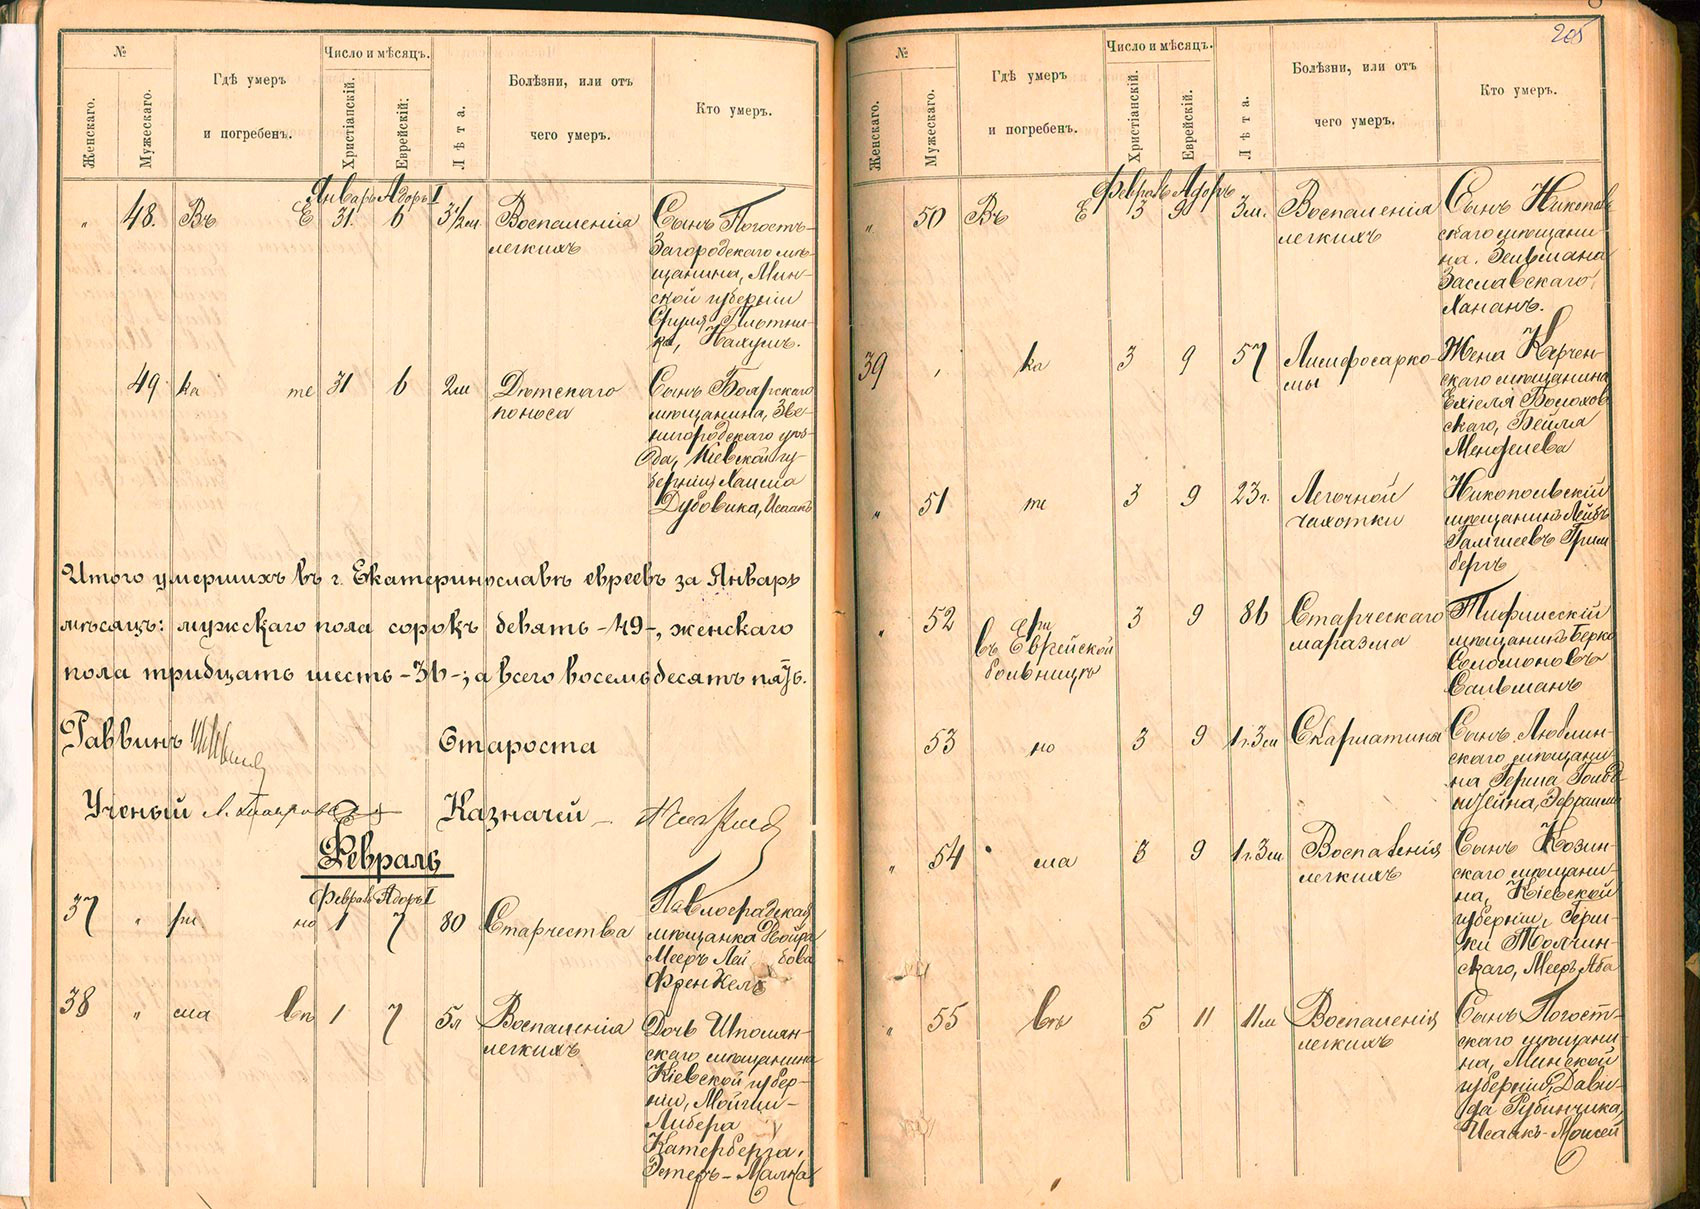 №
Число и мѣсяцъ.
Женскаго.
Мужескаго.
Гдѣ умеръ
и погребенъ.
Христіанскій.
Еврейскій.
Лѣта.
Болѣзни, или отъ
чего умеръ.
Кто умеръ.
Январь Адоръ I
„ 48. Въ Е 31. 6 3½м. Воспаленія
легкихъ
Сынъ Погостъ-
Загородскаго мѣ-
щанина, Мин-
ской губерніи
Сруля Плотни-
ка, Нахумъ.
49 ка те 31 6 2м Дѣтскаго
поноса
Сынъ Боярскаго
мѣщанина, Зве-
нигородскаго уѣз-
да, Кіевской гу-
берніи Хаима
Дубовика, Исаакъ
Итого умершихъ въ г. Екатеринославѣ евреевъ за Январь
мѣсяцъ: мужскаго пола сорокъ девять -49-, женскаго
пола тридцать шесть -36-; а всего восемьдесятъ пять.
Раввинъ
Староста
Ученый
Казначей
Февраль
Февраль Адоръ I
37 „ ри но 1 7 80 Старчества
Павлоградская
мѣщанка Двойра
Мееръ Лейбова
Френкель
38 „ сла вѣ 1 7 5л Воспаленія
легкихъ
Дочь Шполян-
скаго мѣщанина
Кіевской губер-
ніи, Мойши-
Либера
Катерберга,
Эстеръ-Малка
205
№
Число и мѣсяцъ.
Женскаго.
Мужескаго.
Гдѣ умеръ
и погребенъ.
Христіанскій.
Еврейскій.
Лѣта.
Болѣзни, или отъ
чего умеръ.
Кто умеръ.
Февраль Адоръ
„ 50 Въ Е 3 9 3м. Воспаленія
легкихъ
Сынъ Никополь
скаго мѣщани-
на. Зельмана
Заславскаго,
Хананъ.
39 ка 3 9 57 Лимфосарко-
мы
Жена Корчен-
скаго мѣщанина
Ехіеля Волохов
скаго, Бейла
Менделева
„ 51 те 3 9 23г. Легочной
чахотки
Никопольскій
мѣщанинъ Лейбъ
Грим
бергъ
„ 52 ри 3 9 86 Старческаго
маразма
въ Еврейской
больницѣ
мѣщанинъ Берко
Соломоновъ
Сальманъ
53 но 3 9 1г.3м Скарлатина
Сынъ Люблин-
скаго мѣщани-
на Герша Гольд-
штейна, Эфраимъ
„ 54 сла 3 9 1г.3м Воспаленія
легкихъ
Сынъ Козин-
скаго мѣщани-
на, Кіевской
губерніи, Герш-
ки Толчин-
скаго, Мееръ Аба
„ 55 вѣ 5 11 11м Воспаленія
легкихъ
Сынъ Погост-
скаго мѣщани-
на, Минской
губерніи, Дави-
да Рубинчика,
Исаакъ-Моисей